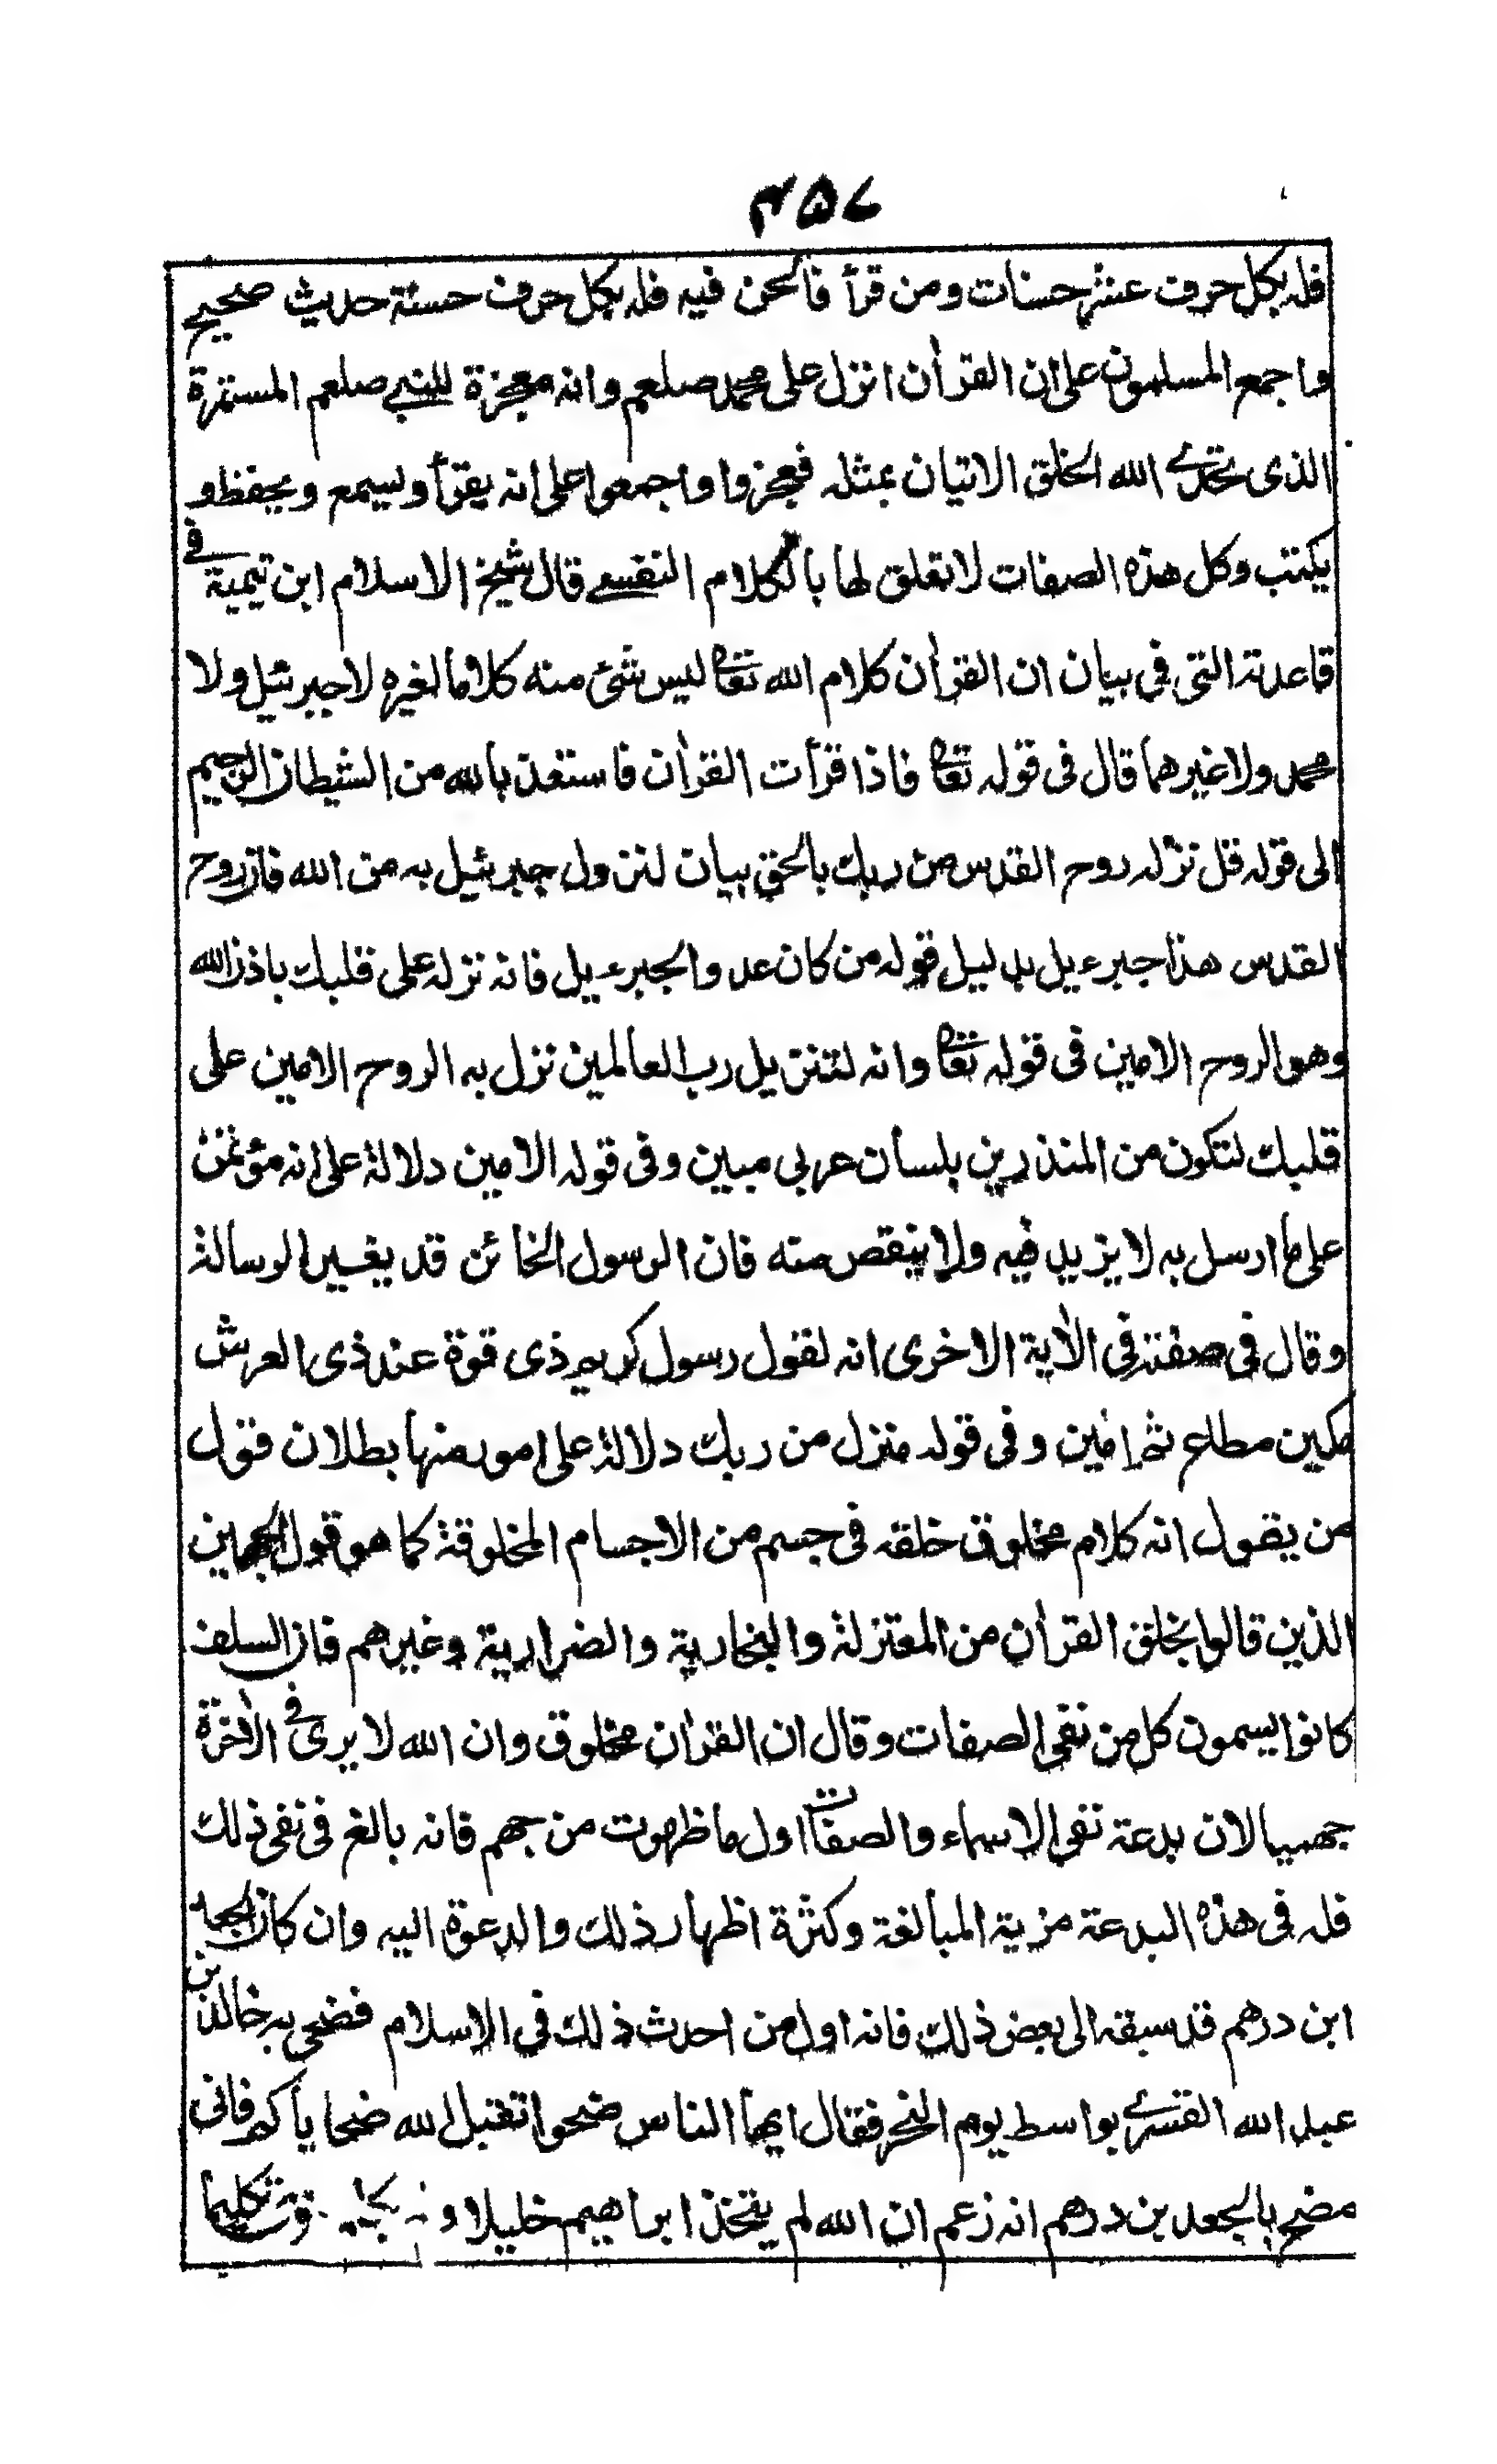 ۴۵۷
فله بكل حرف عشر حسنات ومن قرأ فالحن فيه فله بكل حرف حسنة حديث صحيح
واجمع المسلمون على ان القرأن انزل على محمد صلعم وانه معجزة للنبي صلعم المستمرة
الذى تحدے الله الخلق الاتيان بمثله فعجزوا واجمعوا على انه يقرأ ويسمع ويحفظ و
يكتب وكل هذه الصفات لا تعلق لها بالكلام النفسے قال شيخ الاسلام ابن تيمية فے
قاعدته التى فى بيان ان القرأن كلام الله تعا ليس شئ منه كلاما لغيره لا جبرئيل ولا
محمد ولا غيرهما قال فى قوله تعا فاذا قرأت القرأن فاستعذ بالله من الشيطان الرجيم
الى قوله قل نزله روح القدس من ربك بالحق بيان لنزول جبرئيل به من الله فان روح
القدس هذا جبرءيل بدليل قوله من كان عدوا لجبرءيل فانه نزله على قلبك باذن الله
وهو الروح الامين فى قوله تعا وانه لتنزيل رب العالمين نزل به الروح الامين على
قلبك لتكون من المنذرين بلسان عربى مبين وفى قوله الامين دلالة على انه مؤتمن
على ما ارسل به لا يزيد فيه ولا ينقص منه فان الرسول الخائن قد يغير الرسالة
وقال فى صفته فى الأية الاخرى انه لقول رسول كريم ذى قوة عند ذى العرش
مكين مطاع ثم امين وفى قوله منزل من ربك دلالة على امور منها بطلان قول
من يقول انه كلام مخلوق خلقه فى جسم من الاجسام المخلوقة كما هو قول الجهمين
الذين قالوا بخلق القرأن من المعتزلة والنجارية والضرارية وغيرهم فان السلف
كانوا يسمون كل من نفى الصفات وقال ان القرأن مخلوق وان الله لا يرى فے الأخرة
جهميا لان بدعة نفى الاسماء والصفات اول ما ظهرت من جهم فانه بالغ فى نفى ذلك
فله فى هذه البدعة مزية المبالغة وكثرة اظهار ذلك والدعوة اليه وان كان الجعد
ابن درهم قد سبقه الى بعض ذلك فانه اول من احدث ذلك فى الاسلام فضحى به خالد بن
عبد الله القسرے بواسط يوم النحر فقال ايها الناس ضحوا تقبل الله ضحاياكم فانى
مضح بالجعد بن درهم انه زعم ان الله لم يتخذ ابراهيم خليلا و تكليما